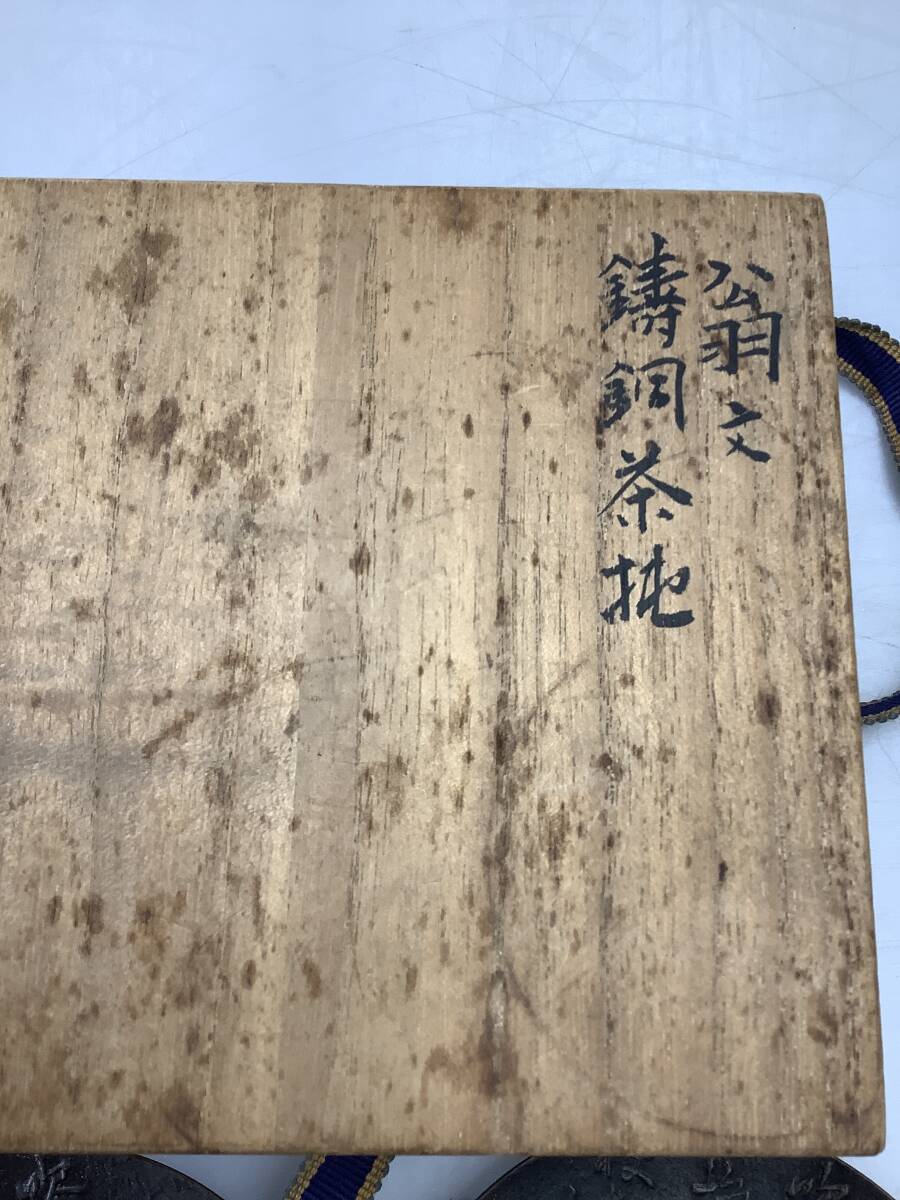 翁文
鋳銅茶托